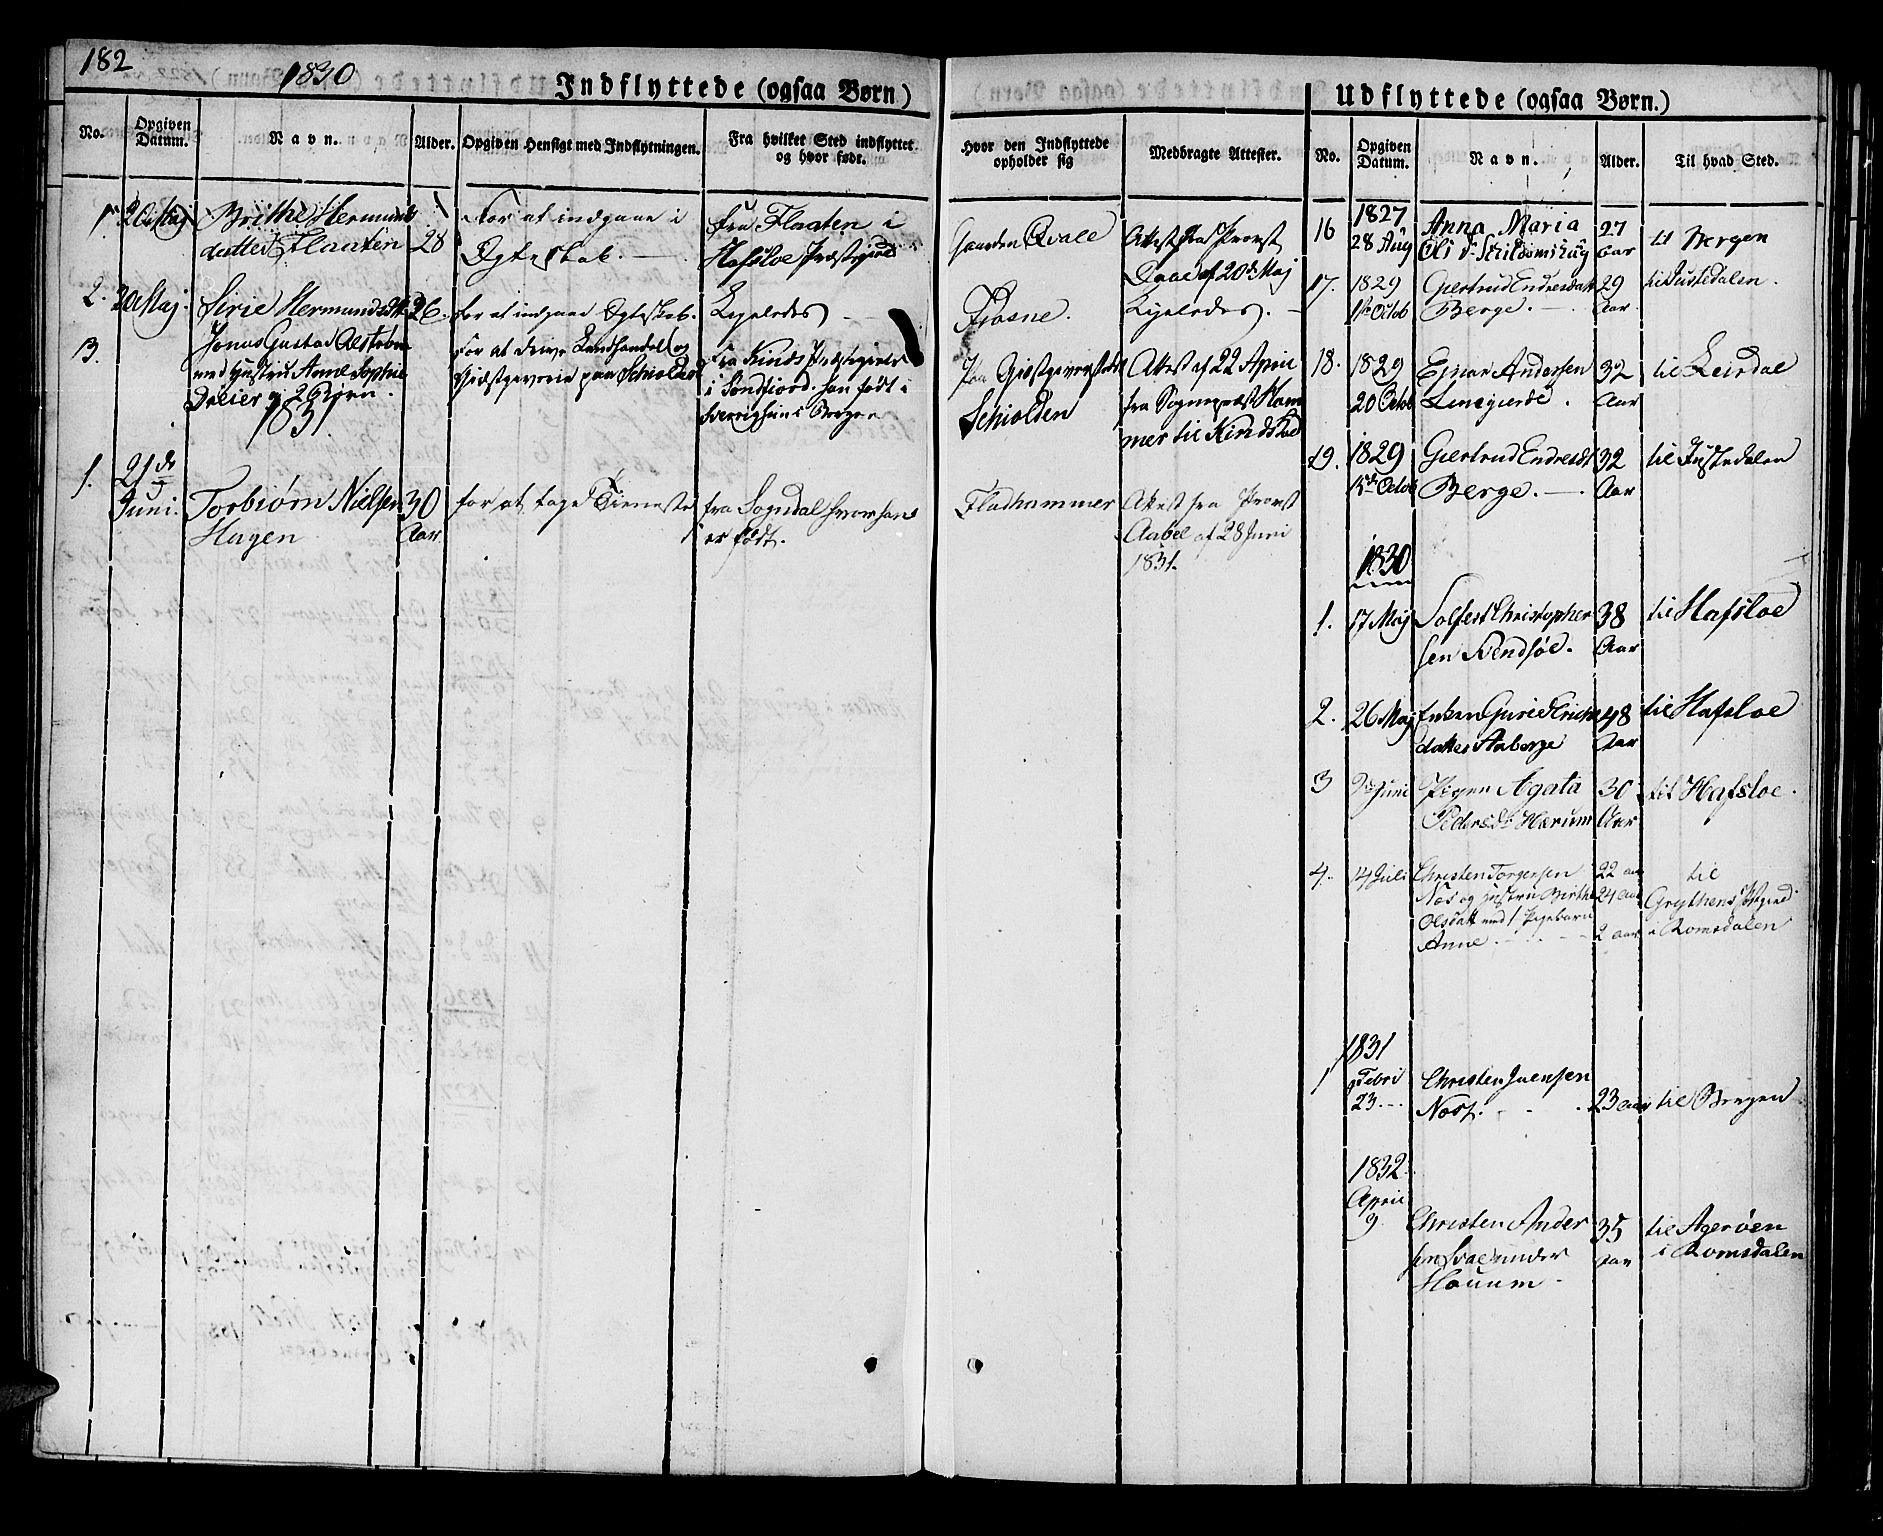 182
1830
Indflyttede (ogsaa Børn)
No. Opgiven Datum. Navn. Alder. Opgiven Hensigt med Indflytningen. Fra hvilket Sted indflyttet og hvor født.
Hvor den Indflyttede opholder sig Medbragte Attester.
1 20 Maj Brithe Hermunds
datter Flaaten 28
For at indgaae i
Ægteskab.
fra Flaaten i
Hafsloe Præstegield
Gaarden Qvale
Attest fra Provst
Daae af 20de Maj
2. 20 Maj. Sirie Hermundsdtt 26. for at indgaae Ægteskab. Ligeledes
Fiøsne. Ligeledes.
3. Jonas Gustad
med Hustru Anne Sophie
Dreier og 2 Børn.
For at drive Landhandel og
Giæstgeverie paa Schiolden
fra Kinds Præstegield
i Søndfiord. han født i
Bergen
Paa Giestgeverstedet
Schiolden
Attest af 22 April
fra Sognepræst Ham
mer til Kinds Kald
1831
1. 21de
Juni. Torbiørn Nielsen
Hagen
30
Aar.
for at tage Tieneste
fra Sogndal hvor han
er født.
Fladhammer
Attest fra Provst
Aabel af 28 Juni
1831.
Udflyttede (ogsaa Børn.)
No. Opgiven Datum. Navn. Alder. Til hvad Sted.
16 1827
28 Aug
Anna Maria
Ols d.
27
aar
til Bergen
17. 1829
1ste Octob
Giertrud Endresdatt
Berge.
29
Aar.
til Justedalen.
18. 1829
20 Octob
Ejnar Andersen
Linegierde.
32
Aar
til Leirdal
19. 1829
15de Octob
Giertrud Endresdt
Berge.
32
Aar
til Justedalen
1830
1. 17 Maj Solfest Christopher
sen Kiendsøe.
38
Aar
til Hafsloe
2. 26 Maj Enken Guri
datter Aaberge
48
Aar
til Hafsloe
3 Juni Pigen Agata
Pedersdt Hærum
30
Aar
til Hafsloe.
4. 14 Juli Christen Torgersen
Næs og Hustru Birthe
Olsdatt med 1 Pigebarn
Anne
22 aar
24 aar
2 aar
til
Grythens Pstgield
i Romsdalen
1831
1 Febri
23.
Christen Juensen
Næss.
23 aar til Bergen
1832
April
9.
Christen Ander
sen under
Houum
35
aar
til Agerøen
i Romsdalen